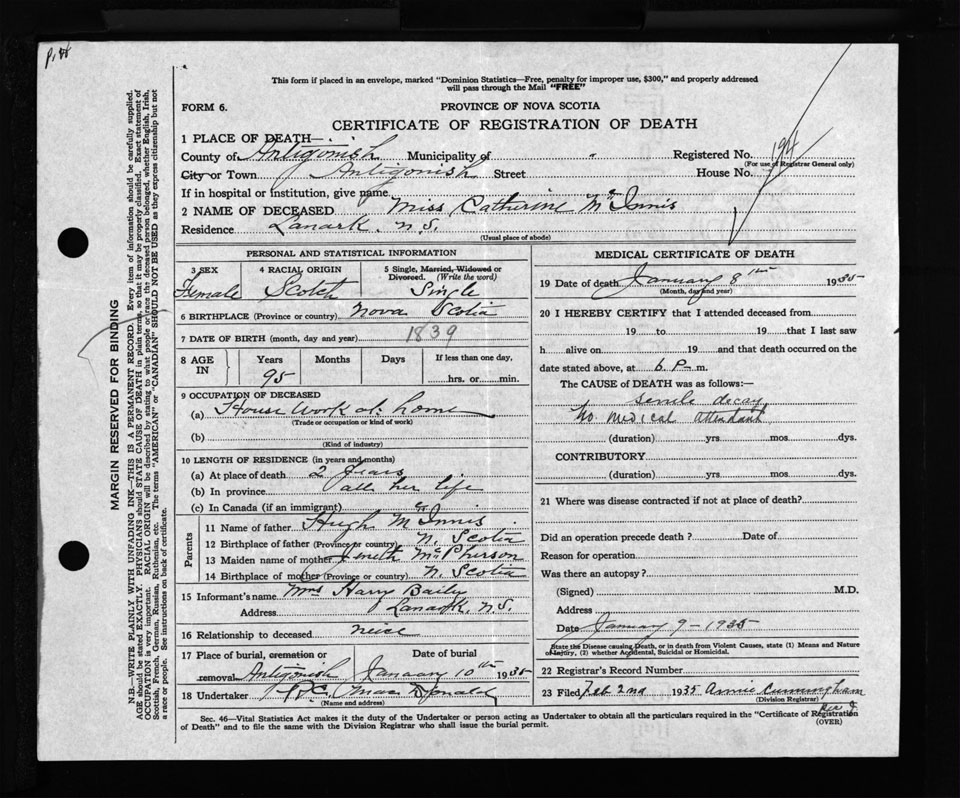 This form if placed in an envelope, marked "Dominion Statistics—Free, penalty for improper use, $300," and properly addressed
will pass through the Mail "FREE"
FORM 6.
PROVINCE OF NOVA SCOTIA
CERTIFICATE OF REGISTRATION OF DEATH
1 PLACE OF DEATH—
County of Antigonish Municipality of " Registered No. 194
(For use of Registrar General only)
City or Town Antigonish Street House No.
If in hospital or institution, give name
2 NAME OF DECEASED Miss Catherine McInnis
Residence Lanark. N.S.
(Usual place of abode)
PERSONAL AND STATISTICAL INFORMATION
3 SEX 4 RACIAL ORIGIN 5 Single, Married, Widowed or Divorced. (Write the word)
Female Scotch Single
6 BIRTHPLACE (Province or country) Nova Scotia
7 DATE OF BIRTH (month, day and year) 1839
8 AGE IN Years Months Days If less than one day,
95 hrs. or min.
9 OCCUPATION OF DECEASED
(a) House Work at home
(Trade or occupation or kind of work)
(b)
(Kind of industry)
10 LENGTH OF RESIDENCE (in years and months)
(a) At place of death 2 years
(b) In province all her life
(c) In Canada (if an immigrant)
Parents
11 Name of father Hugh McInnis
12 Birthplace of father (Province or country) N. Scotia
13 Maiden name of mother McPherson
14 Birthplace of mother (Province or country) N. Scotia
15 Informant's name Mrs Harry Baily
Address Lanark, N.S.
16 Relationship to deceased neice
17 Place of burial, cremation or removal Date of burial
Antigonish January 10th 1935
18 Undertaker MacDonald
(Name and address)
MEDICAL CERTIFICATE OF DEATH
19 Date of death January 8th 1935
(Month, day and year)
20 I HEREBY CERTIFY that I attended deceased from
19 to 19 that I last saw
h alive on 19 and that death occurred on the
date stated above, at 6 P. m.
The CAUSE OF DEATH was as follows:—
senile decay
No medical attendant
(duration) yrs. mos. dys.
CONTRIBUTORY
(duration) yrs. mos. dys.
21 Where was disease contracted if not at place of death?
Did an operation precede death? Date of
Reason for operation
Was there an autopsy?
(Signed) M.D.
Address
Date January 9-1935
State the Disease causing Death, or in death from Violent Causes, state (1) Means and Nature
of Injury, (2) whether Accidental, Suicidal or Homicidal.
22 Registrar's Record Number
23 Filed Feb 2nd 1935 Annie Cunningham
(Division Registrar)
Sec. 46—Vital Statistics Act makes it the duty of the Undertaker or person acting as Undertaker to obtain all the particulars required in the "Certificate of Registration
of Death" and to file the same with the Division Registrar who shall issue the burial permit.
(OVER)
MARGIN RESERVED FOR BINDING
N.B.—WRITE PLAINLY WITH UNFADING INK—THIS IS A PERMANENT RECORD. Every item of information should be carefully supplied.
AGE should be stated EXACTLY. PHYSICIANS should STATE CAUSE OF DEATH in plain terms, so that it may be properly classified. Exact statement of
OCCUPATION is very important. RACIAL ORIGIN will be described by stating to what people or race the deceased person belonged, whether English, Irish,
Scottish, French, German, Russian, Ruthenian, etc. The terms "AMERICAN" or "CANADIAN" SHOULD NOT BE USED as they express citizenship but not
a race or people. See instructions on back of certificate.